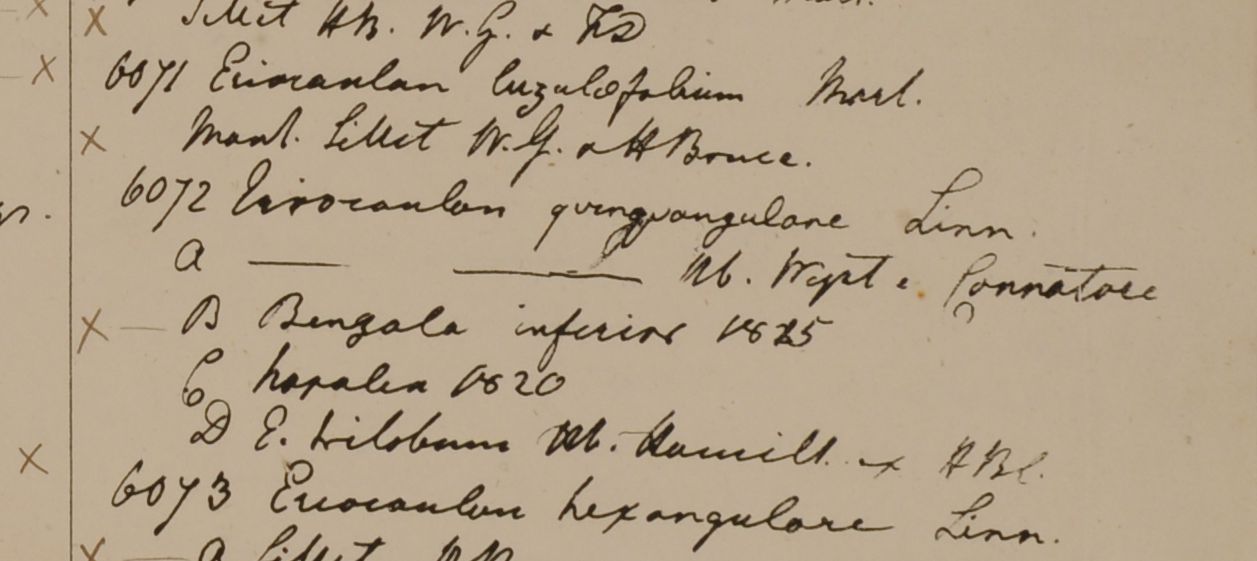 Sillet HB. W.G. & FD
6071 Eriocaulon luzulæfolium Mart.
Mont. Sillet W.G. & HBruce.
6072 Eriocaulon quinquangulare Linn.
A — — Hb. Wight e
B Bengala inferior 1825
C Napalia 1820
D E. trilobum Hb. Hamilt. & HBC.
6073 Eriocaulon hexangulare Linn.
a Sillet